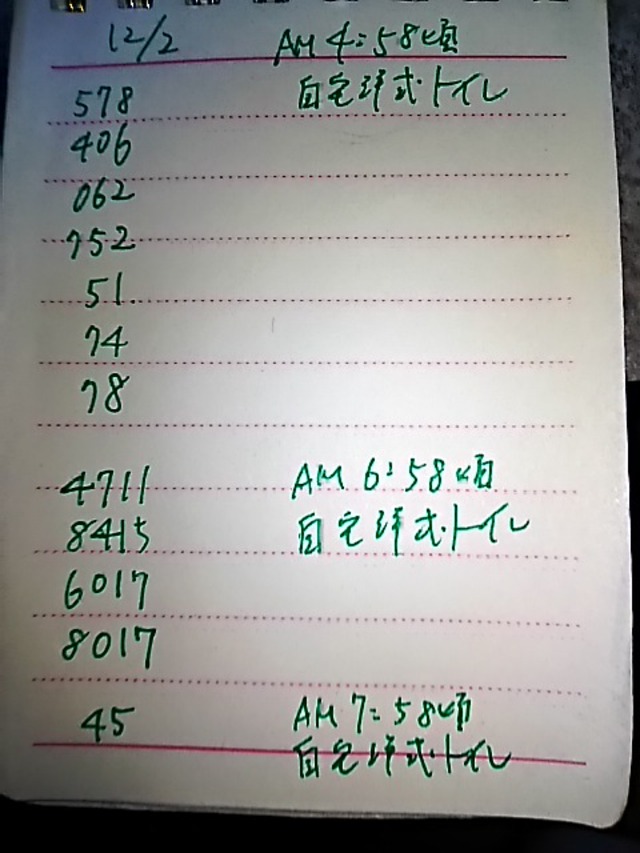 12/2 AM 4:58頃
578 自宅洋式トイレ
406
062
752
51.
74
78
4711 AM 6:58頃
8415 自宅洋式トイレ
6017
8017
45 AM 7:58頃
自宅洋式トイレ